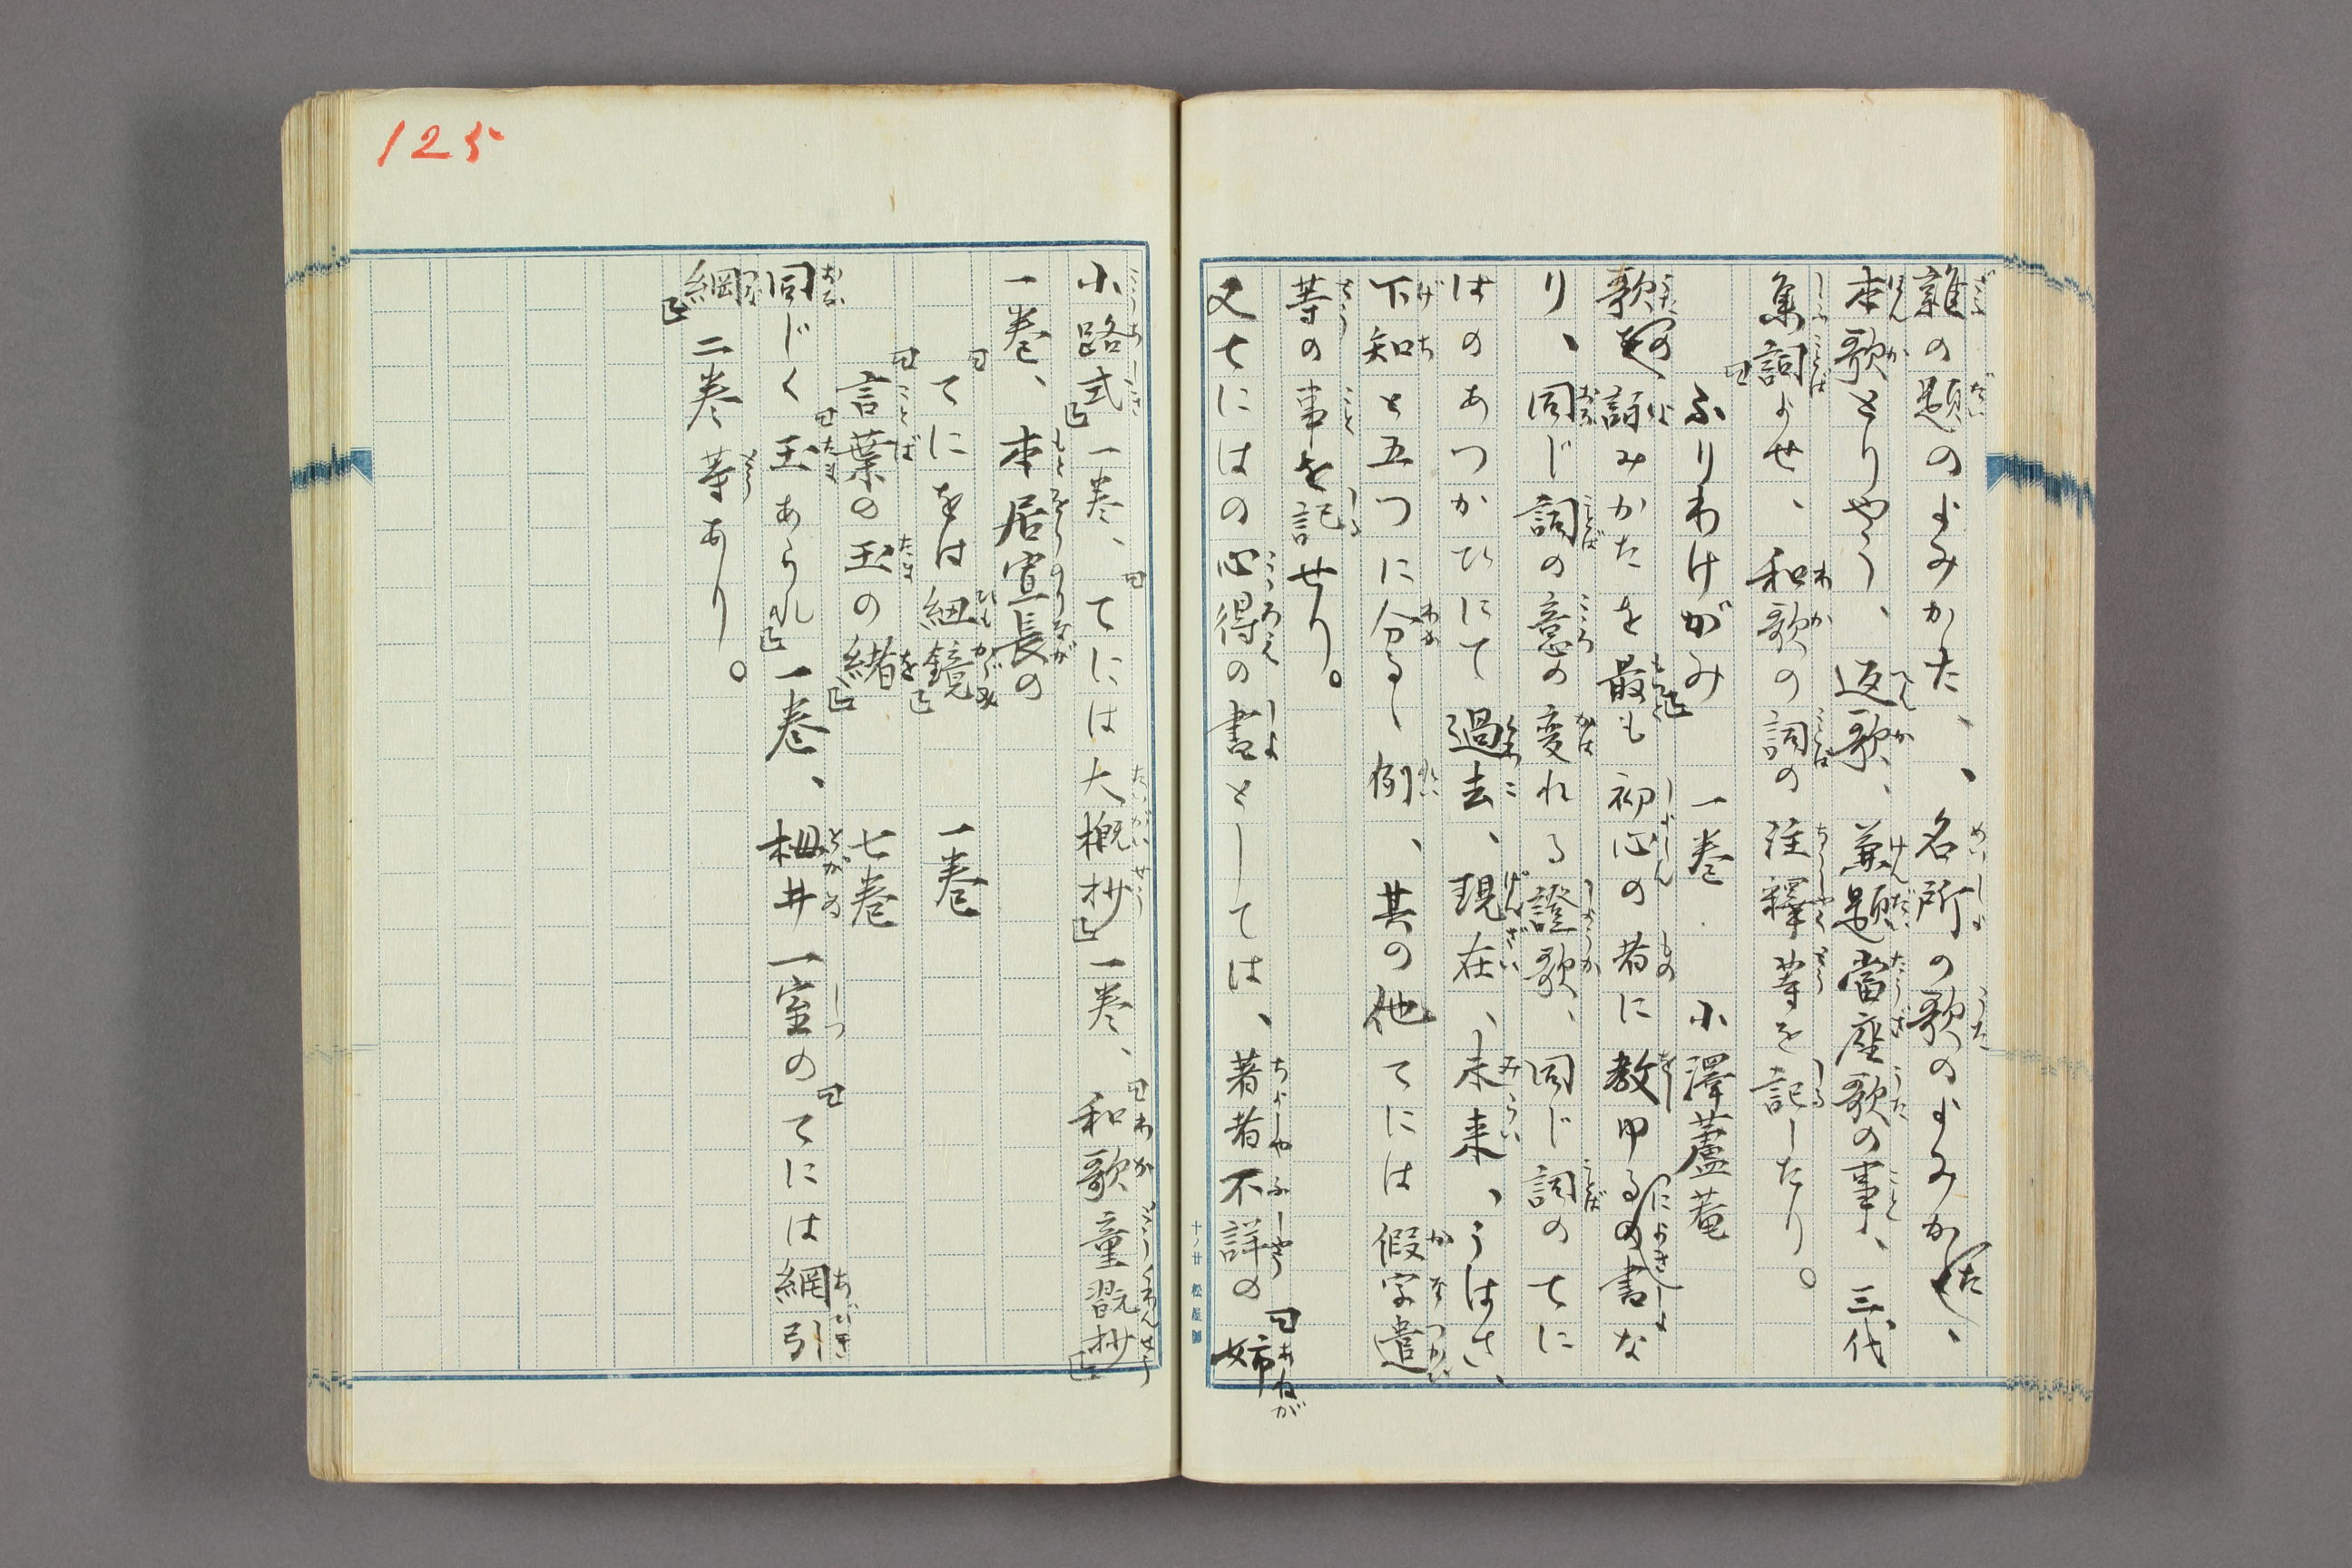 雜の題のよみかた、名所の歌のよみかた、
本歌とりやう、返歌、兼題當座歌の事、三代
集詞よせ、和歌の詞の注釋等を記したり。
『ふりわけがみ』一巻 小澤蘆菴
歌の詠みかたを最も初心の者に教ゆるによき書な
り、同じ詞の意の変れる證歌、同じ詞のてに
はのあつかひにて過去、現在、未来、うはさ、
下知と五つに分るゝ例、其の他てには假字遣
等の事を記せり。
又てにはの心得の書としては、著者不詳の『姉
小路式』一巻、『てには大概抄』一巻、『和歌童翫抄』
一巻、本居宣長の
『てにをは紐鏡』 一巻
『言葉の玉の緒』 七巻
同じく『玉あられ』一巻、栂井一室の『てには網引
綱』二巻等あり。
125
十ノ廿 松屋製